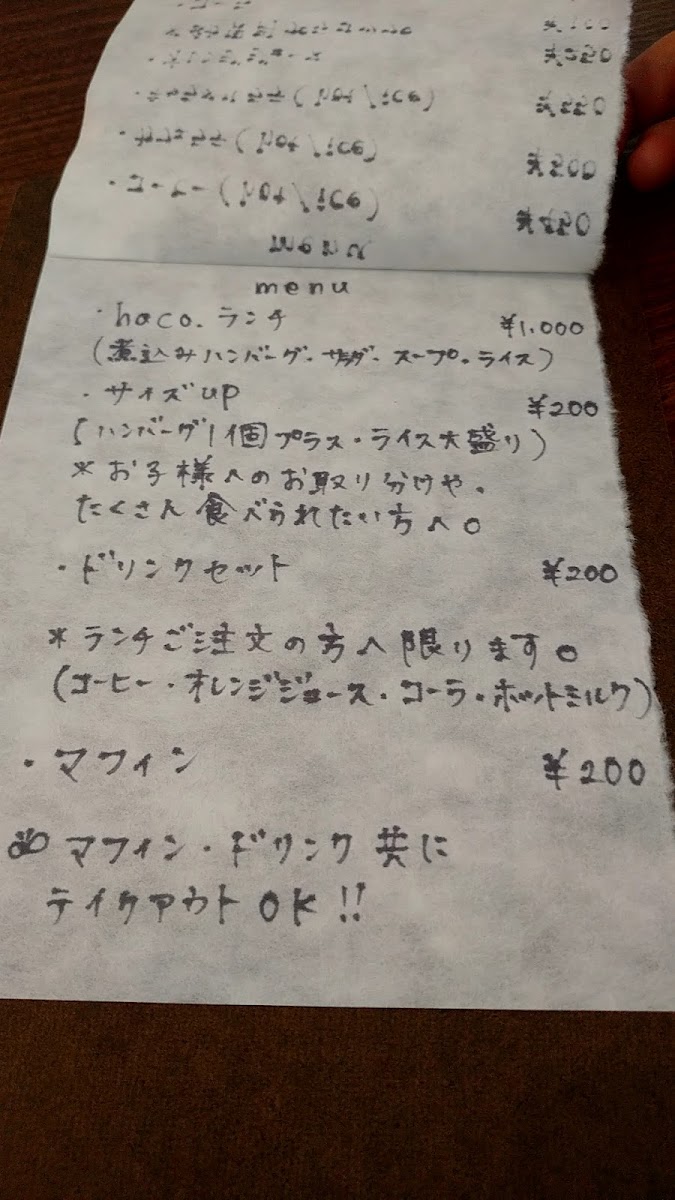 ・カフェラテ(hot/ice)
・コーヒー(hot/ice)
menu
menu
・haco.ランチ ¥1.000
(煮込みハンバーグ・サラダ・スープ・ライス)
・サイズup ¥200
(ハンバーグ1個プラス・ライス大盛り)
*お子様へのお取り分けや、
たくさん食べられたい方へ。
・ドリンクセット ¥200
*ランチご注文の方へ限ります。
(コーヒー・オレンジジュース・コーラ・ホットミルク)
・マフィン ¥200
マフィン・ドリンク共に
テイクアウトOK!!